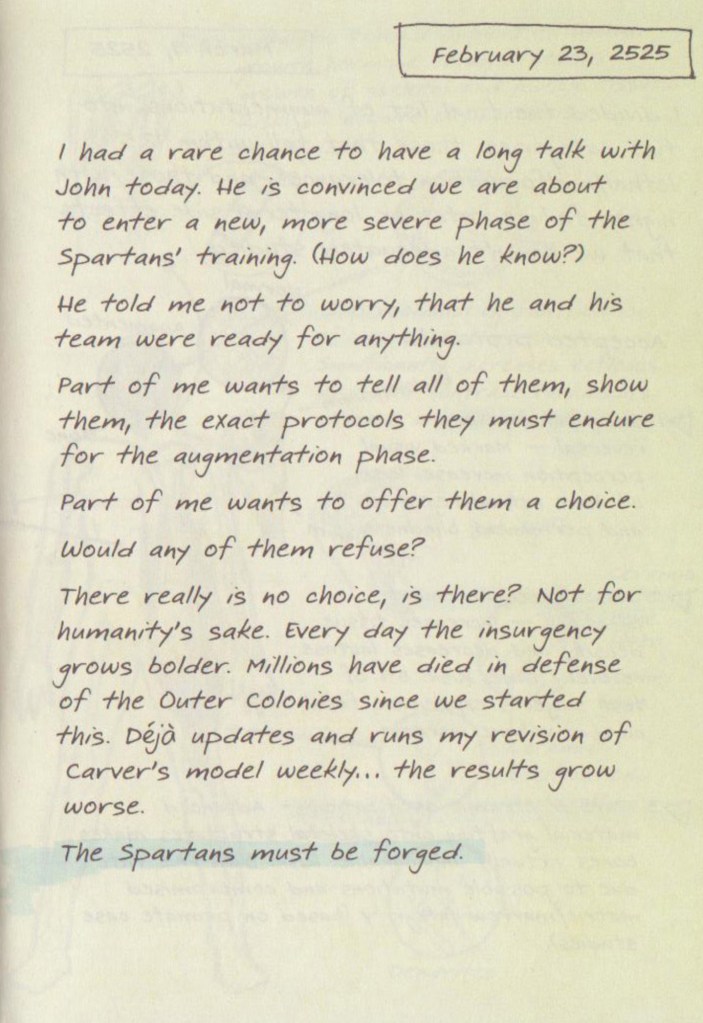 February 23, 2525
I had a rare chance to have a long talk with
John today. He is convinced we are about
to enter a new, more severe phase of the
Spartans' training. (How does he know?)
He told me not to worry, that he and his
team were ready for anything.
Part of me wants to tell all of them, show
them, the exact protocols they must endure
for the augmentation phase.
Part of me wants to offer them a choice.
Would any of them refuse?
There really is no choice, is there? Not for
humanity's sake. Every day the insurgency
grows bolder. Millions have died in defense
of the Outer Colonies since we started
this. Déjà updates and runs my revision of
Carver's model weekly... the results grow
worse.
The Spartans must be forged.